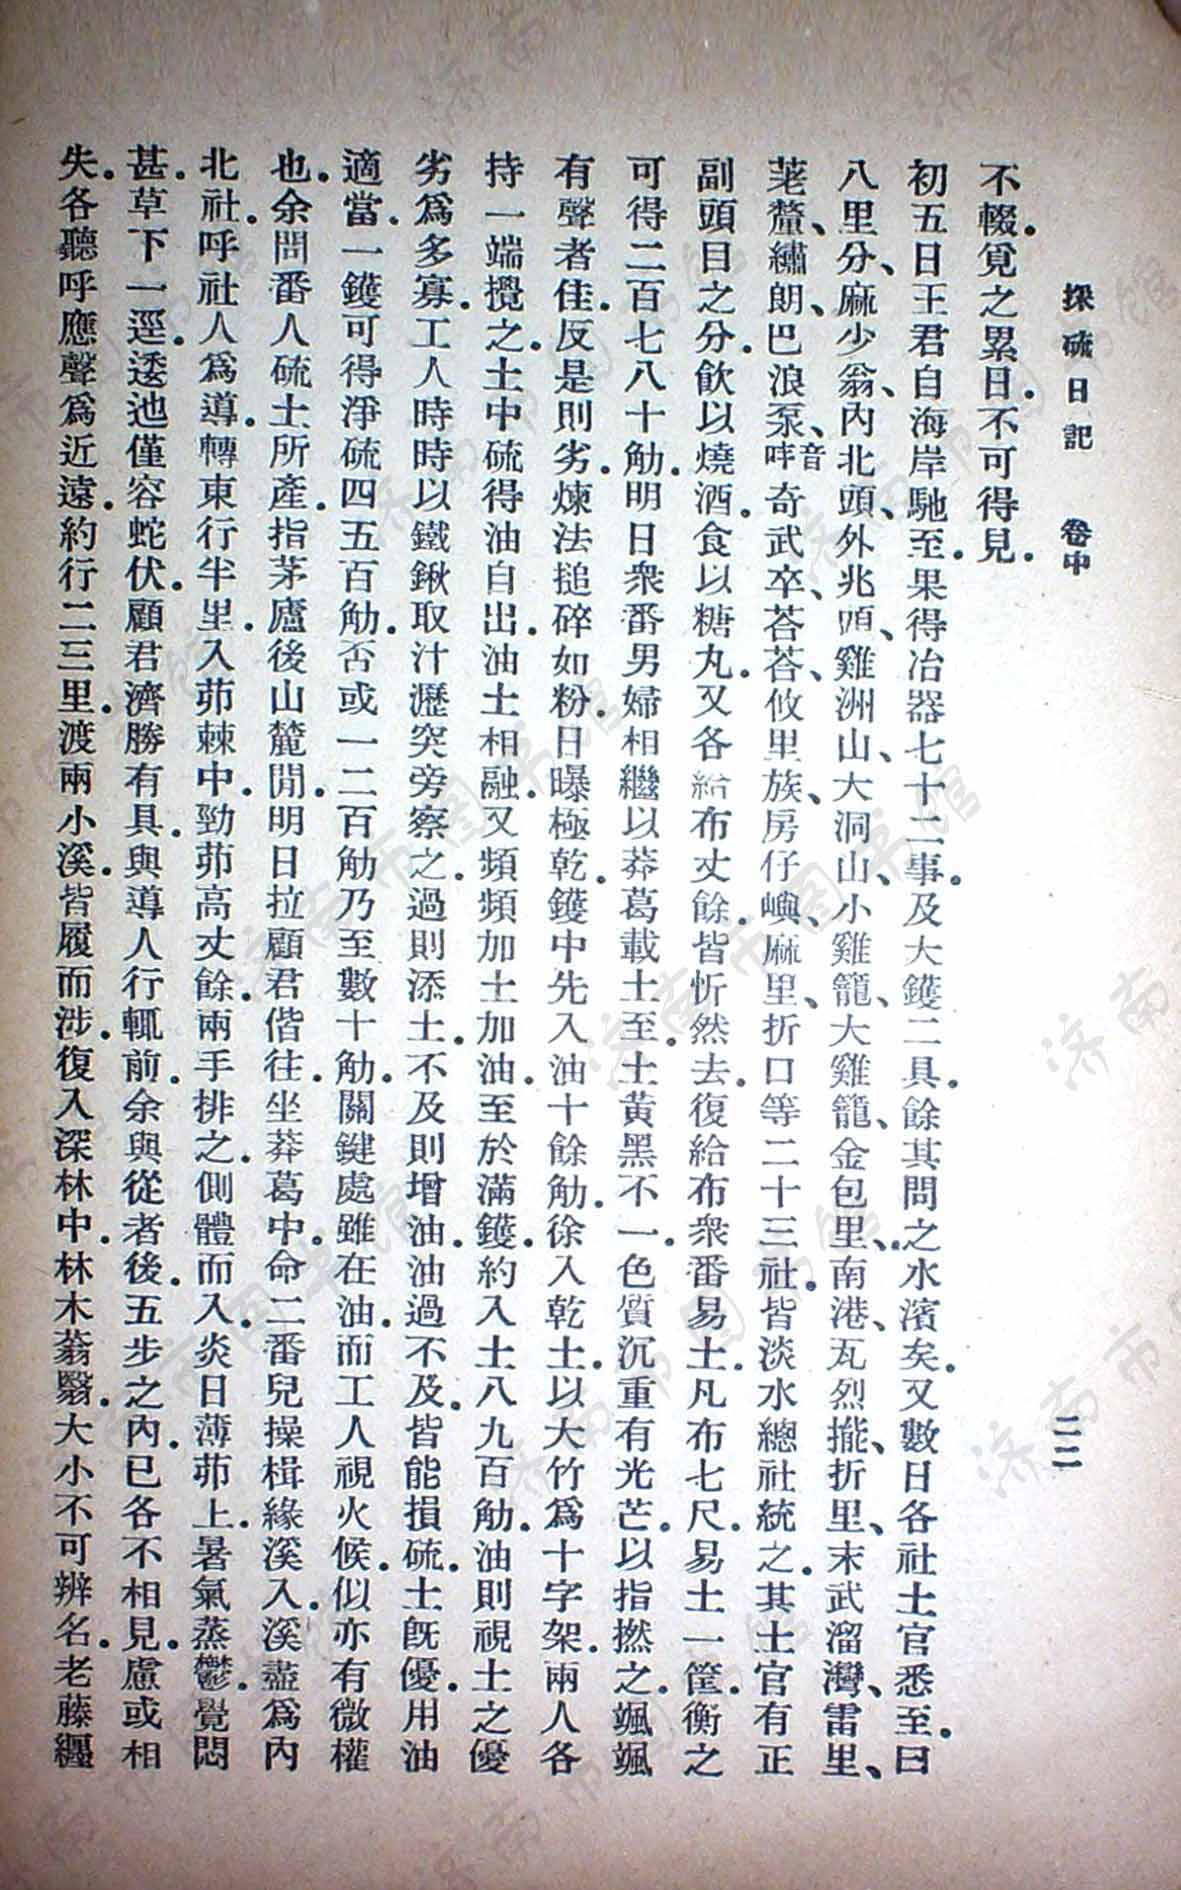 採硫日記　卷中　　二二
不輟。覓之累日。不可得見。
初五日王君自海岸馳至。果得冶器七十二事。及大鑊二具。餘其問之水濱矣。又數日各社土官悉至。曰
八里分、麻少翁、內北頭、外北頭、雞洲山、大洞山、小雞籠、大雞籠、金包里、南港、瓦烈、擺折、里末、武溜灣、雷里、
荖釐、繡朗、巴浪泵、音㕩奇武卒、荅荅攸、里族、房仔嶼、麻里折口等二十三社。皆淡水總社統之。其土官有正
副頭目之分。飲以燒酒。食以糖丸。又各給布丈餘。皆忻然去。復給布衆番易土。凡布七尺。易土一筐。衡之
可得二百七八十觔。明日衆番男婦相繼以莽葛載土至。土黃黑不一。色質沉重有光芒。以指撚之。颯颯
有聲者佳。反是則劣。煉法搥碎如粉。日曝極乾。鑊中先入油十餘觔。徐入乾土。以大竹爲十字架。兩人各
持一端攪之。土中硫得油自出。油土相融。又頻頻加土加油。至於滿鑊。約入土八九百觔。油則視土之優
劣爲多寡。工人時時以鐵鍬取汁瀝突旁察之。過則添土。不及則增油。油過不及。皆能損硫。土旣優。用油
適當。一鑊可得淨硫四五百觔。否或一二百觔乃至數十觔。關鍵處雖在油。而工人視火候。似亦有微權
也。余問番人硫土所產。指茅廬後山麓閒。明日拉顧君偕往。坐莽葛中。命二番兒操楫緣溪入。溪盡爲內
北社。呼社人爲導。轉東行半里。入茆棘中。勁茆高丈餘。兩手排之。側體而入。炎日薄茆上。暑氣蒸鬱。覺悶
甚。草下一逕。逶迆僅容蛇伏。顧君濟勝有具。與導人行輒前。余與從者後。五步之內。已各不相見。慮或相
失。各聽呼應聲爲近遠。約行二三里。渡兩小溪。皆履而涉。復入深林中。林木蓊翳。大小不可辨名。老藤纏